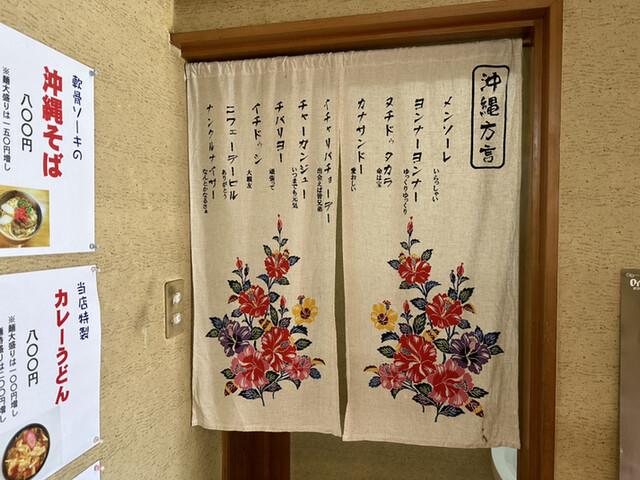 沖縄方言
メンソーレ
いらっしゃい
ヨンナーヨンナー
ゆっくりゆっくり
ヌチドゥタカラ
命は宝
カナサンドー
愛おしい
イチャリバチョーデー
出会えば皆兄弟
チャーガンジュ
いつまでも元気
チバリヨー
頑張って
イチドゥシ
大親友
ニフェーデービル
ありがとう
ナンクルナイサー
なんとかなるさぁ
軟骨ソーキの
沖縄そば
八〇〇円
※麺大盛りは一五〇円増し
当店特製
カレーうどん
八〇〇円
※麺大盛りは一〇〇円増し